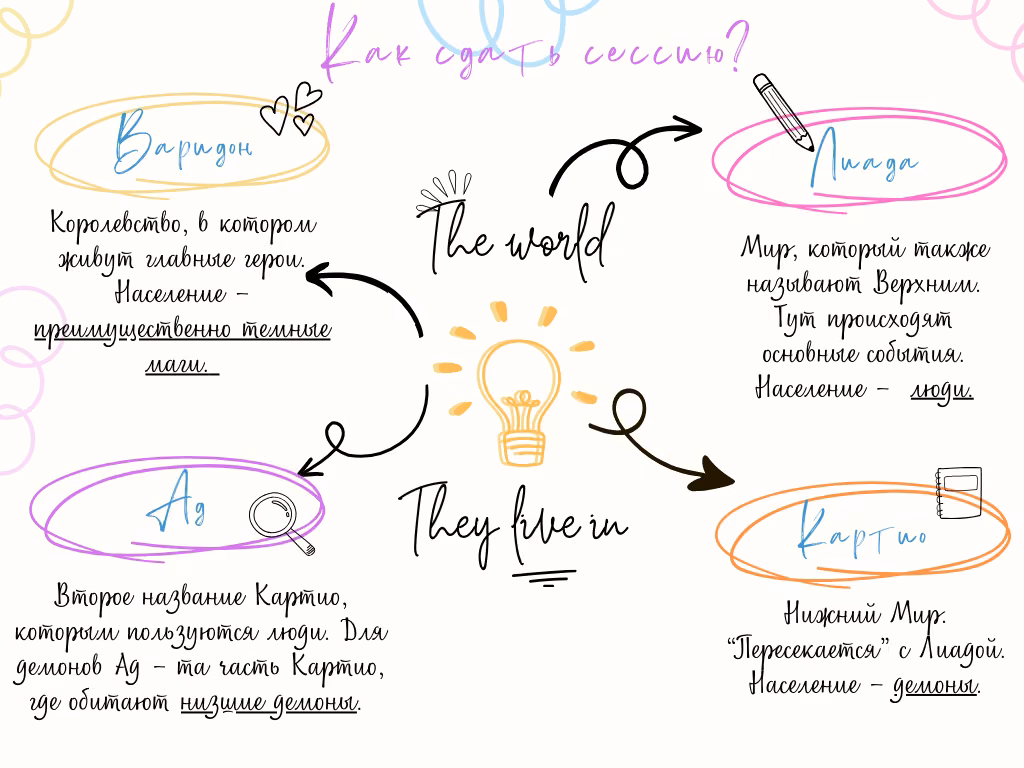 Как сдать сессию?
Варидон
Королевство, в котором
живут главные герои.
Население –
преимущественно темные
маги.
The world
Лиада
Мир, который также
называют Верхним.
Тут происходят
основные события.
Население – люди.
Ад
Второе название Картио,
которым пользуются люди. Для
демонов Ад – та часть Картио,
где обитают низшие демоны.
They live in
Картио
Нижний Мир.
“Пересекается” с Лиадой.
Население – демоны.